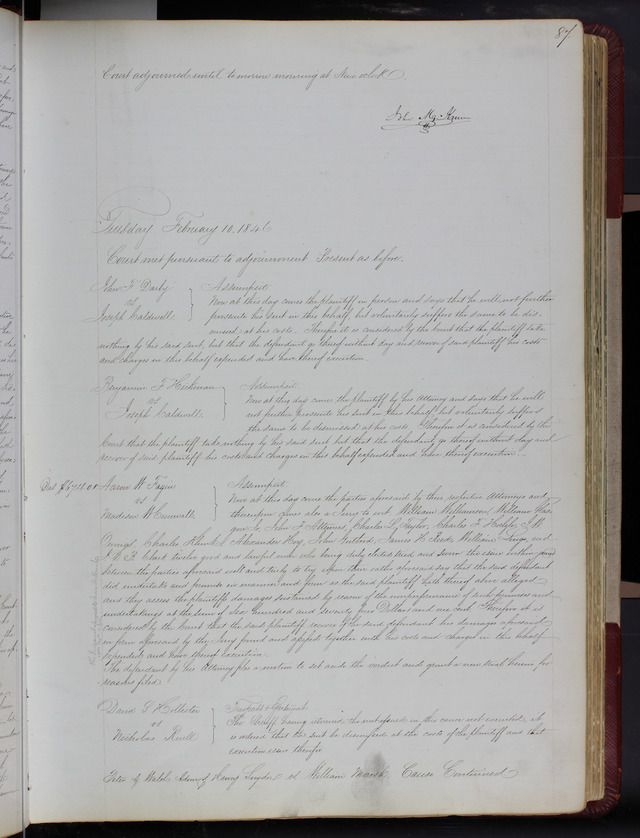 87
Court adjourned until tomorrow morning at Nine o'clock.
Tuesday February 10, 1846
Court met pursuant to adjournment Present as before.
John F. Darby
vs
Joseph Caldwell
Assumpsit.
Now at this day comes the plaintiff in person and says that he will not further
prosecute his suit in this behalf, but voluntarily suffers the same to be dis-
missed at his costs. Therefore it is considered by the Court that the plaintiff take
nothing by his said suit, but that the defendant go thereof without day and recover of said plaintiff his costs
and charges in this behalf expended and have thereof execution.
Benjamin F. Hickman
vs
Joseph Caldwell
Assumpsit.
Now at this day comes the plaintiff by his Attorney and says that he will
not further prosecute his suit in this behalf, but voluntarily suffers
the same to be dismissed at his costs. Therefore it is considered by the
Court that the plaintiff take nothing by his said suit but that the defendant go thereof without day and
recover of said plaintiff his costs and charges in this behalf expended and have thereof execution.
Aaron W. Fagin
vs
Madison W.
Assumpsit.
Now at this day come the parties aforesaid by their respective Attorneys and
thereupon comes also a Jury to wit William Williamson, William
John F. Charles D. Taylor, Charles F.
Charles Alexander Hoy, John James H. William and
Clark twelve good and lawful men who being duly elected tried and sworn the issue within joined
between the parties aforesaid well and truly to try upon their oaths aforesaid say that the said defendant
did undertake and promise in manner and form as the said plaintiff hath thereof above alleged
and they assess the plaintiffs damages sustained by reason of the nonperformance of such promises and
undertakings at the sum of Six Hundred and seventy four Dollars and one cent. Therefore it is
considered by the Court that the said plaintiff recover of the said defendant his damages aforesaid
in form aforesaid by the Jury found and assessed together with his costs and charges in this behalf
expended and have thereof execution.
The defendant by his Attorney files a motion to set aside the verdict and grant a new trial herein for
reasons filed.
David S. Hollister
vs
Nicholas
The Sheriff having returned the writ issued in this cause not executed, it
is ordered that the suit be dismissed at the costs of the plaintiff and that
execution issue therefor
Peter Walsh Admr of Henry Snyder vs William Marsh, Cause Continued